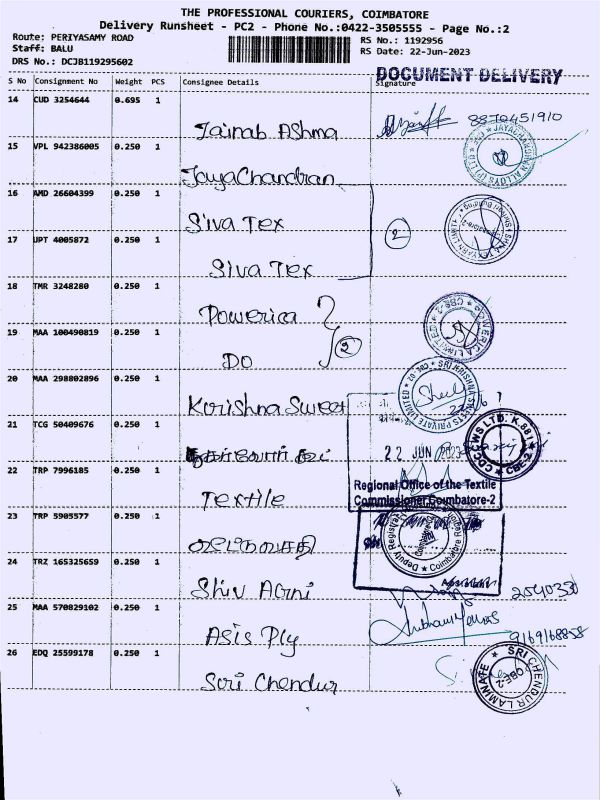 THE PROFESSIONAL COURIERS, COIMBATORE
Delivery Runsheet - PC2 - Phone No.:0422-3505555 - Page No.:2
Route: PERIYASAMY ROAD
RS No.: 1192956
Staff: BALU
RS Date: 22-Jun-2023
DRS No.: DCJB119295602
DOCUMENT DELIVERY
S No Consignment No Weight PCS Consignee Details Signature
14 CUD 3254644 0.695 1
Jainab Ashma 8870451910
15 VPL 942386005 0.250 1
JAYACHANDRAN ALLOYS (P) LTD
JayaChandran
16 AMD 26604399 0.250 1
Siva Tex
2
17 UPT 4005872 0.250 1
Siva Tex
18 TMR 3248280 0.250 1
Powerica
POWERICA LIMITED CBE-2
19 MAA 100490819 0.250 1
DO 2
SRI KRISHNA SWEETS PRIVATE LIMITED
20 MAA 298802896 0.250 1
Krishna Sweet
21 TCG 50409676 0.250 1
22 JUN 2023
CBE-2
22 TRP 7996185 0.250 1
Regional Office of the Textile
Commissioner Coimbatore-2
Textile
23 TRP 5905577 0.250 1
Deputy Registrar Coimbatore Region
24 TRZ 165325659 0.250 1
Shiv Agni
25 MAA 570829102 0.250 1
Asis Ply 9169168858
26 EDQ 25599178 0.250 1
SRI CHENDUR LAMINATE CBE-2
Sri Chendur